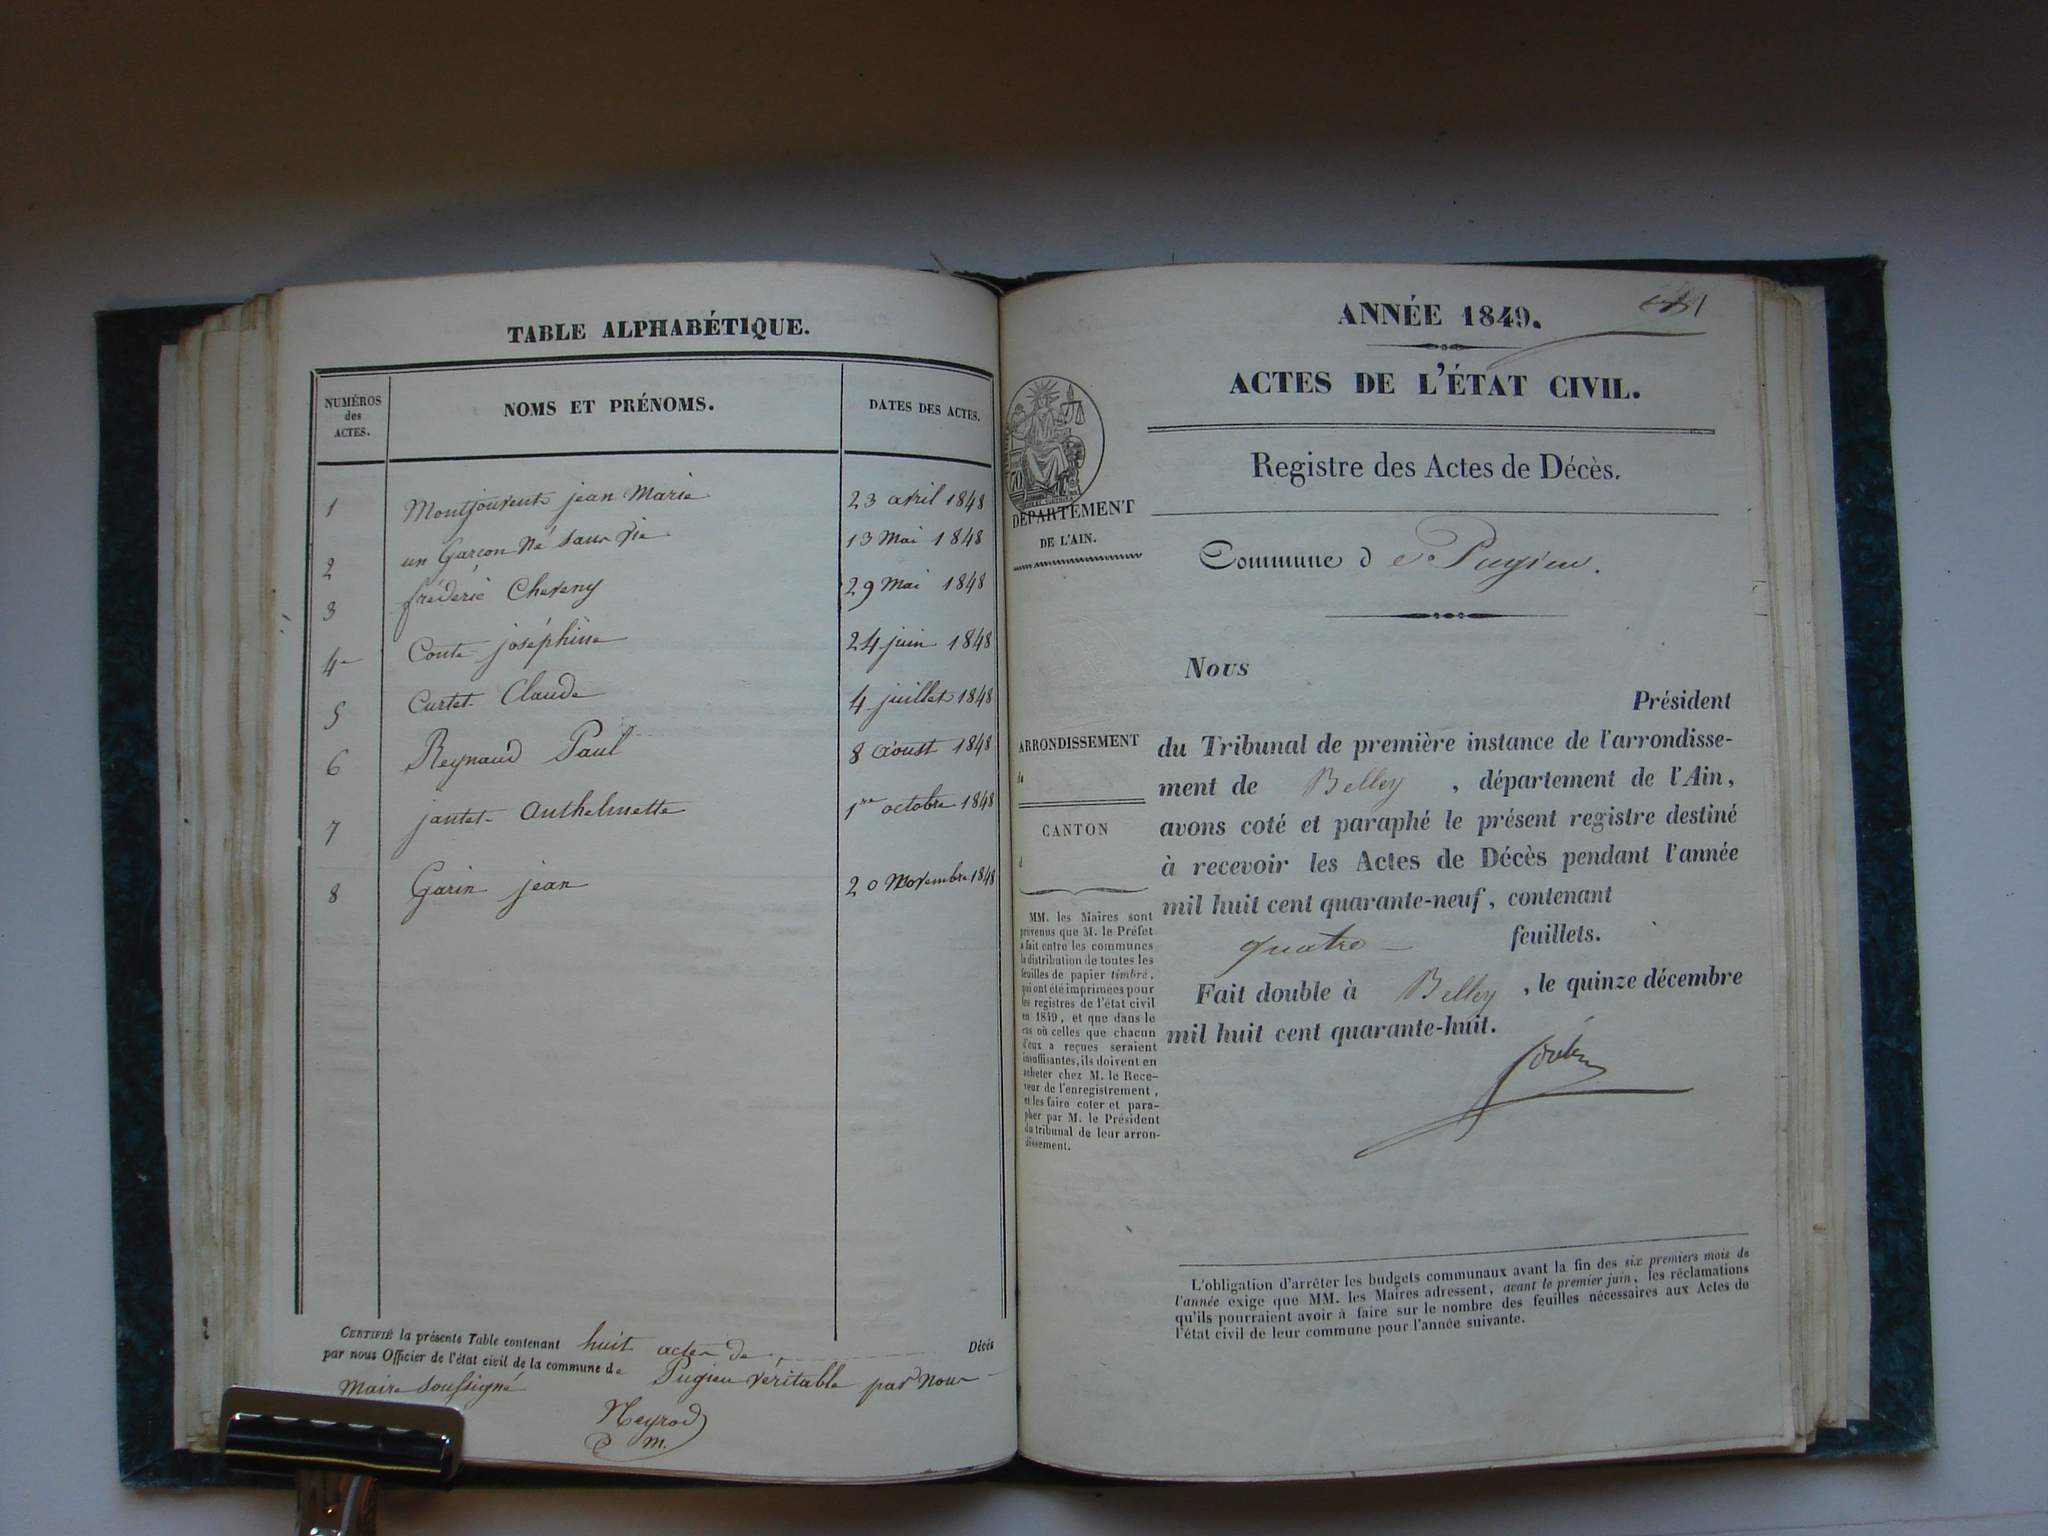 TABLE ALPHABÉTIQUE.
NUMÉROS
des
ACTES.
NOMS ET PRÉNOMS.
DATES DES ACTES.
1 Montjouvent jean Marie 23 avril 1848
2 un Garcon Né sans vie 13 Mai 1848
3 fréderic Cheveny 29 Mai 1848
4 Conte joséphine 24 juin 1848
5 Curtet Claude 4 juillet 1848
6 Reynaud Paul 8 aoust 1848
7 jantet Anthelmette 1re octobre 1848
8 Garin jean 20 Novembre 1848
CERTIFIÉ la présente Table contenant huit actes de Décès
par nous Officier de l'état civil de la commune de Pugieu véritable par Nous
Maire soussigné
Neyrod
m.
ANNÉE 1849.
1
ACTES DE L'ÉTAT CIVIL.
Registre des Actes de Décès.
DÉPARTEMENT
DE L'AIN.
Commune de Pugieu.
Nous
Président
du Tribunal de première instance de l'arrondisse-
ment de Belley, département de l'Ain,
avons coté et paraphé le présent registre destiné
à recevoir les Actes de Décès pendant l'année
mil huit cent quarante-neuf, contenant
quatre feuillets.
Fait double à Belley, le quinze décembre
mil huit cent quarante-huit.
ARRONDISSEMENT
CANTON
MM. les Maires sont
prévenus que M. le Préfet
a fait entre les communes
la distribution de toutes les
feuilles de papier timbré,
qui ont été imprimées pour
les registres de l'état civil
en 1849, et que dans le
cas où celles que chacun
d'eux a reçues seraient
insuffisantes, ils doivent en
acheter chez M. le Rece-
veur de l'enregistrement,
et les faire coter et para-
pher par M. le Président
du tribunal de leur arron-
dissement.
L'obligation d'arrêter les budgets communaux avant la fin des six premiers mois de
l'année exige que MM. les Maires adressent, avant le premier juin, les réclamations
qu'ils pourraient avoir à faire sur le nombre des feuilles nécessaires aux Actes de
l'état civil de leur commune pour l'année suivante.